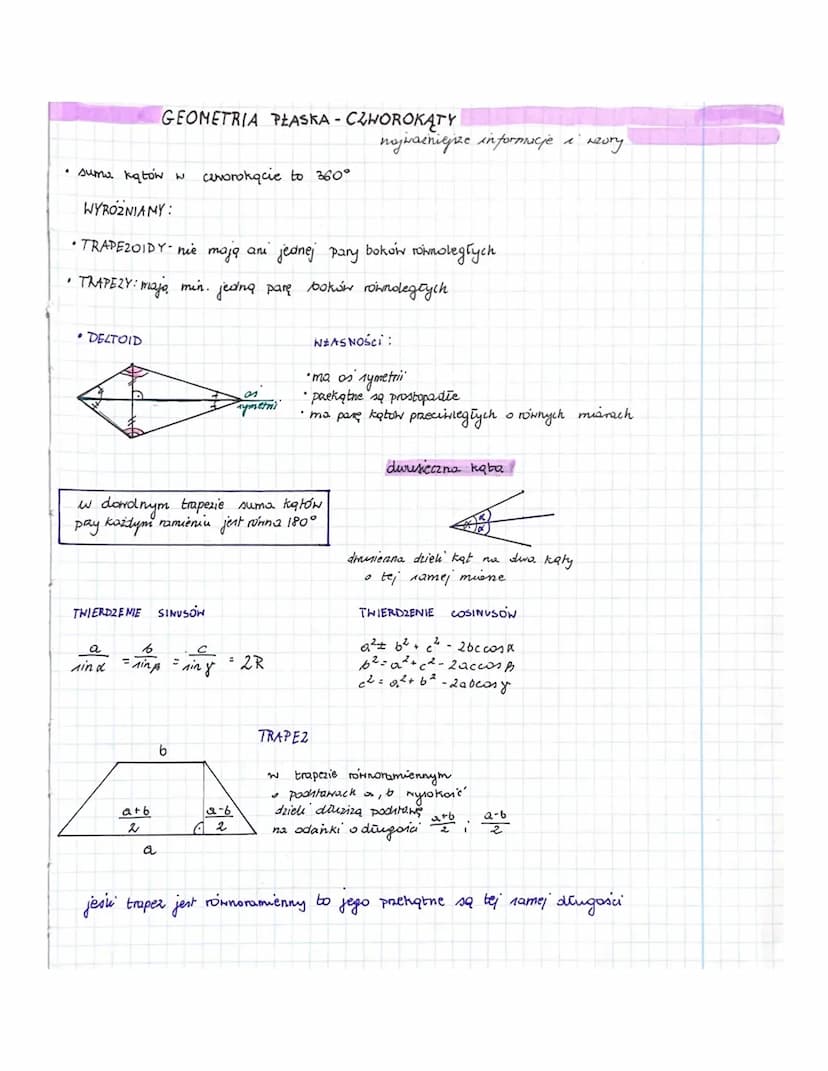 GEOMETRIA PŁASKA - CZWOROKĄTY
najważniejsze informacje i wzory
• suma kątów w czworokącie to 360°
WYRÓŻNIAMY:
• TRAPEZOIDY - nie mają ani jednej pary boków równoległych
• TRAPEZY: mają min. jedną parę boków równoległych
• DELTOID
WŁASNOŚCI:
oś
symetrii
• ma oś symetrii
• przekątne są prostopadłe
• ma parę kątów przeciwległych o równych miarach
dwusieczna kąta
w dowolnym trapezie suma kątów
przy każdym ramieniu jest równa 180°
α
α
dwusieczna dzieli kąt na dwa kąty
o tej samej mierze
TWIERDZENIE SINUSÓW
a/sinα = b/sinβ = c/sinγ = 2R
TWIERDZENIE COSINUSÓW
a² = b² + c² - 2bc cosα
b² = a² + c² - 2ac cosβ
c² = a² + b² - 2ab cosγ
TRAPEZ
b
a+b/2
a-b/2
a
w trapezie równoramiennym
o podstawach a, b wysokość
dzieli dłuższą podstawę
na odcinki o długości a+b/2 i a-b/2
jeśli trapez jest równoramienny to jego przekątne są tej samej długości